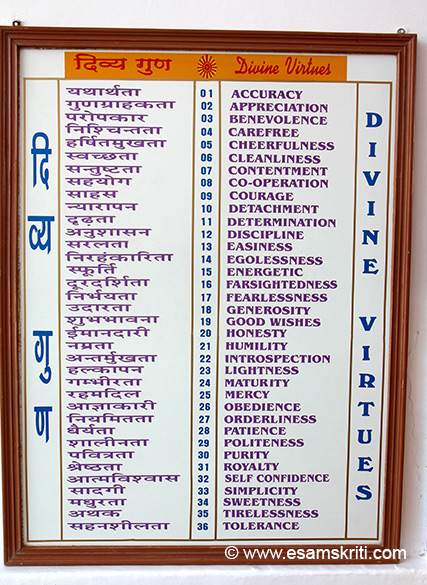 दिव्य गुण Divine Virtues
यथार्थता 01 ACCURACY
गुणग्राहकता 02 APPRECIATION
परोपकार 03 BENEVOLENCE
निश्चिन्तता 04 CAREFREE
हर्षितमुखता 05 CHEERFULNESS
स्वच्छता 06 CLEANLINESS
सन्तुष्टता 07 CONTENTMENT
सहयोग 08 CO-OPERATION
साहस 09 COURAGE
न्यारापन 10 DETACHMENT
दृढ़ता 11 DETERMINATION
अनुशासन 12 DISCIPLINE
सरलता 13 EASINESS
निरहंकारिता 14 EGOLESSNESS
स्फूर्ति 15 ENERGETIC
दूरदर्शिता 16 FARSIGHTEDNESS
निर्भयता 17 FEARLESSNESS
उदारता 18 GENEROSITY
शुभभावना 19 GOOD WISHES
ईमानदारी 20 HONESTY
नम्रता 21 HUMILITY
अन्तर्मुखता 22 INTROSPECTION
हल्कापन 23 LIGHTNESS
गम्भीरता 24 MATURITY
रहमदिल 25 MERCY
आज्ञाकारी 26 OBEDIENCE
नियमितता 27 ORDERLINESS
धैर्यता 28 PATIENCE
शालीनता 29 POLITENESS
पवित्रता 30 PURITY
श्रेष्ठता 31 ROYALTY
आत्मविश्वास 32 SELF CONFIDENCE
सादगी 33 SIMPLICITY
मधुरता 34 SWEETNESS
अथक 35 TIRELESSNESS
सहनशीलता 36 TOLERANCE
दिव्य गुण
DIVINE VIRTUES
© www.esamskriti.com